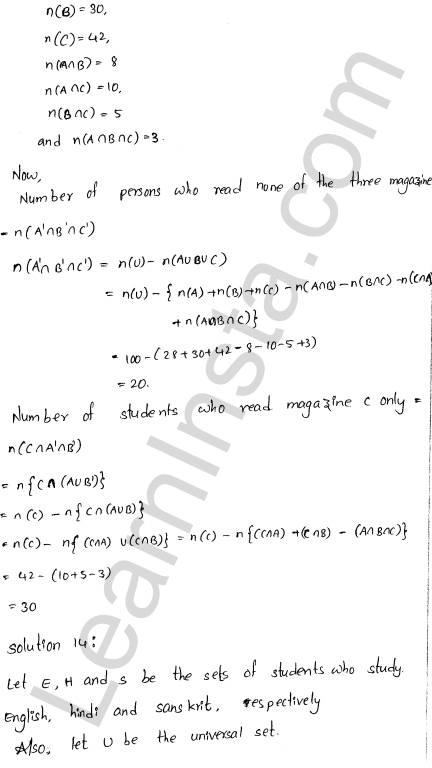 n(B) = 30,
n(C) = 42,
n(A∩B) = 8
n(A∩C) = 10,
n(B∩C) = 5
and n(A∩B∩C) = 3.
Now,
Number of persons who read none of the three magazine
= n(A'∩B'∩C')
n(A'∩B'∩C') = n(U) - n(A∪B∪C)
= n(U) - {n(A) + n(B) + n(C) - n(A∩B) - n(B∩C) - n(C∩A)
+ n(A∩B∩C)}
= 100 - (28 + 30 + 42 - 8 - 10 - 5 + 3)
= 20.
Number of students who read magazine C only =
n(C∩A'∩B')
= n{C∩(A∪B')}
= n(C) - n{C∩(A∪B)}
= n(C) - n{(C∩A) ∪ (C∩B)} = n(C) - n{(C∩A) + (C∩B) - (A∩B∩C)}
= 42 - (10+5-3)
= 30
Solution 14:
Let E, H and S be the sets of students who study.
English, hindi and sanskrit, respectively
Also, let U be the universal set.
LearnInsta.com